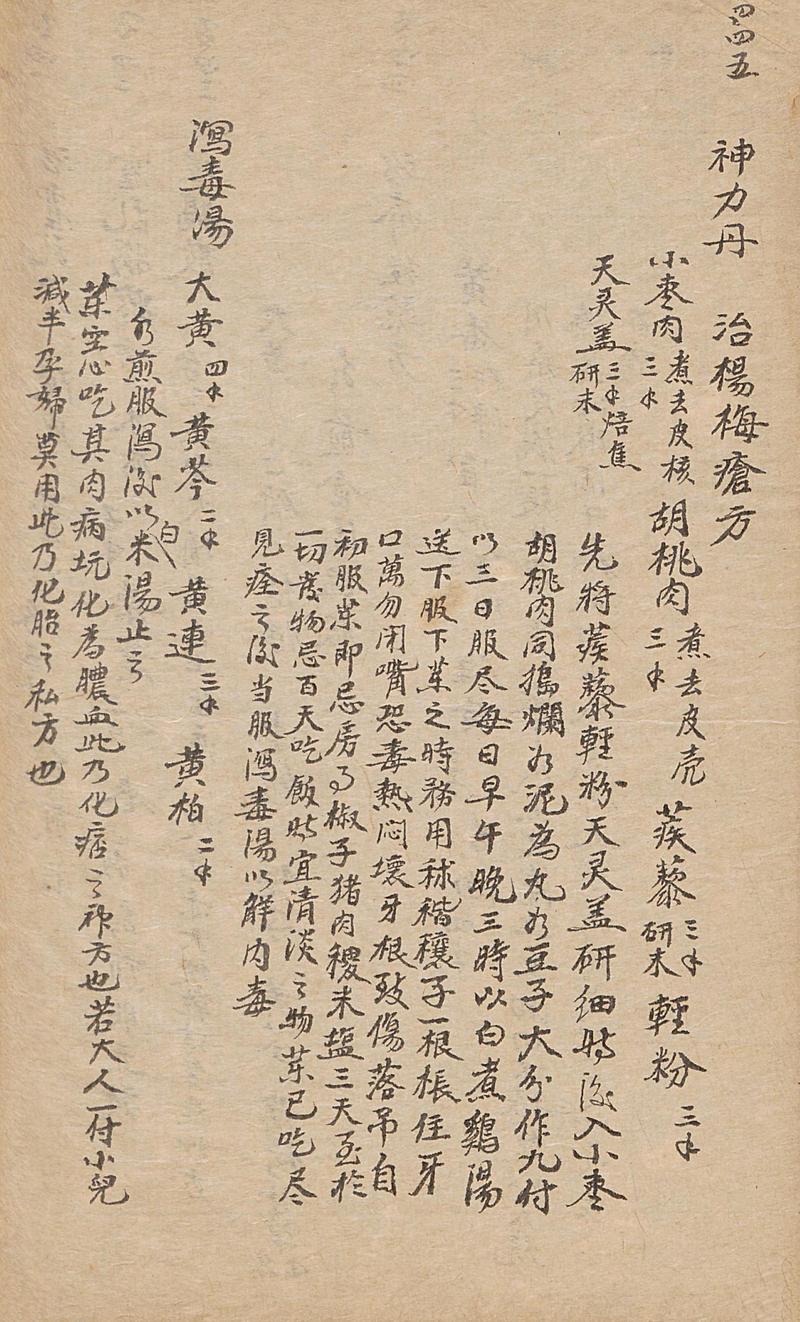 四四五
神力丹 治楊梅瘡方
小枣肉三个煮去皮核 胡桃肉三个煮去皮壳 蒺藜三个研末 輕粉三个
天灵盖三个焙焦研末
先将蒺藜輕粉天灵盖研細然後入小枣
胡桃肉同搗爛为泥為丸为豆子大分作九付
以三日服尽每日早午晚三時以白煮鷄湯
送下服下薬之時務用秫稭穰子一根棖住牙
口萬勿闭嘴恐毒熱闷壞牙根致傷落吊自
初服薬即忌房事椒子猪肉稷米盐三天至於
一切发物忌百天吃飯時宜清淡之物薬已吃尽
見痊之後当服瀉毒湯以解内毒
瀉毒湯 大黄四个 黄芩二个 黄連三个 黄柏二个
水煎服瀉後以白米湯止之
薬空心吃其肉病坑化為膿血此乃化痞之神方也若大人一付小兒
減半孕婦莫用此乃化胎之私方也